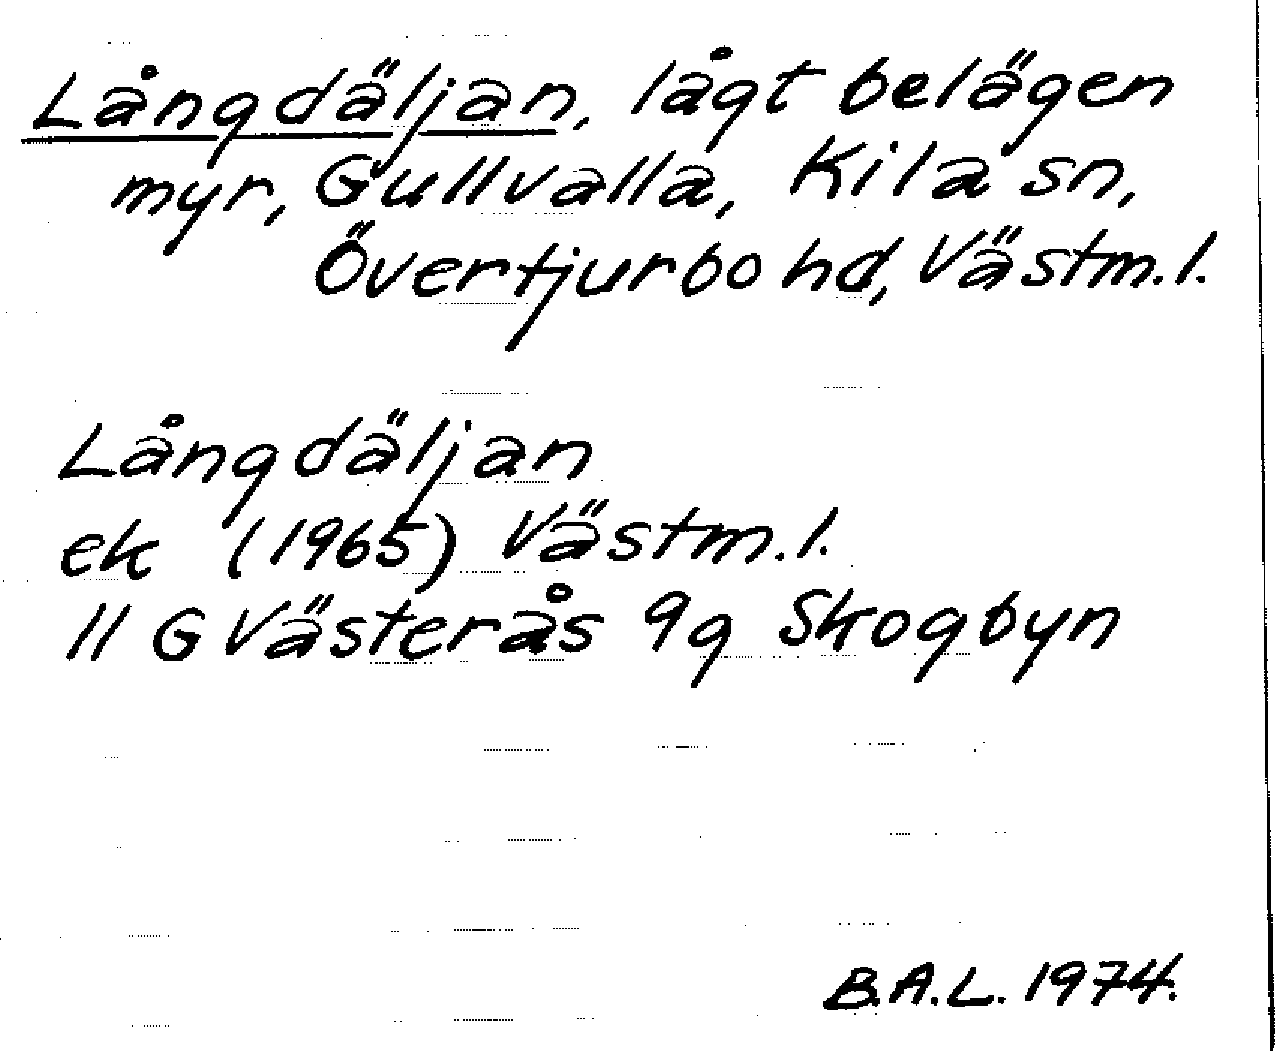 Långdäljan, lågt belägen
myr, Gullvalla, Kila sn,
Övertjurbo hd, Västm. l.
Långdäljan
ek (1965) Västm. l.
11 G Västerås 9g Skogbyn
B.A.L. 1974.